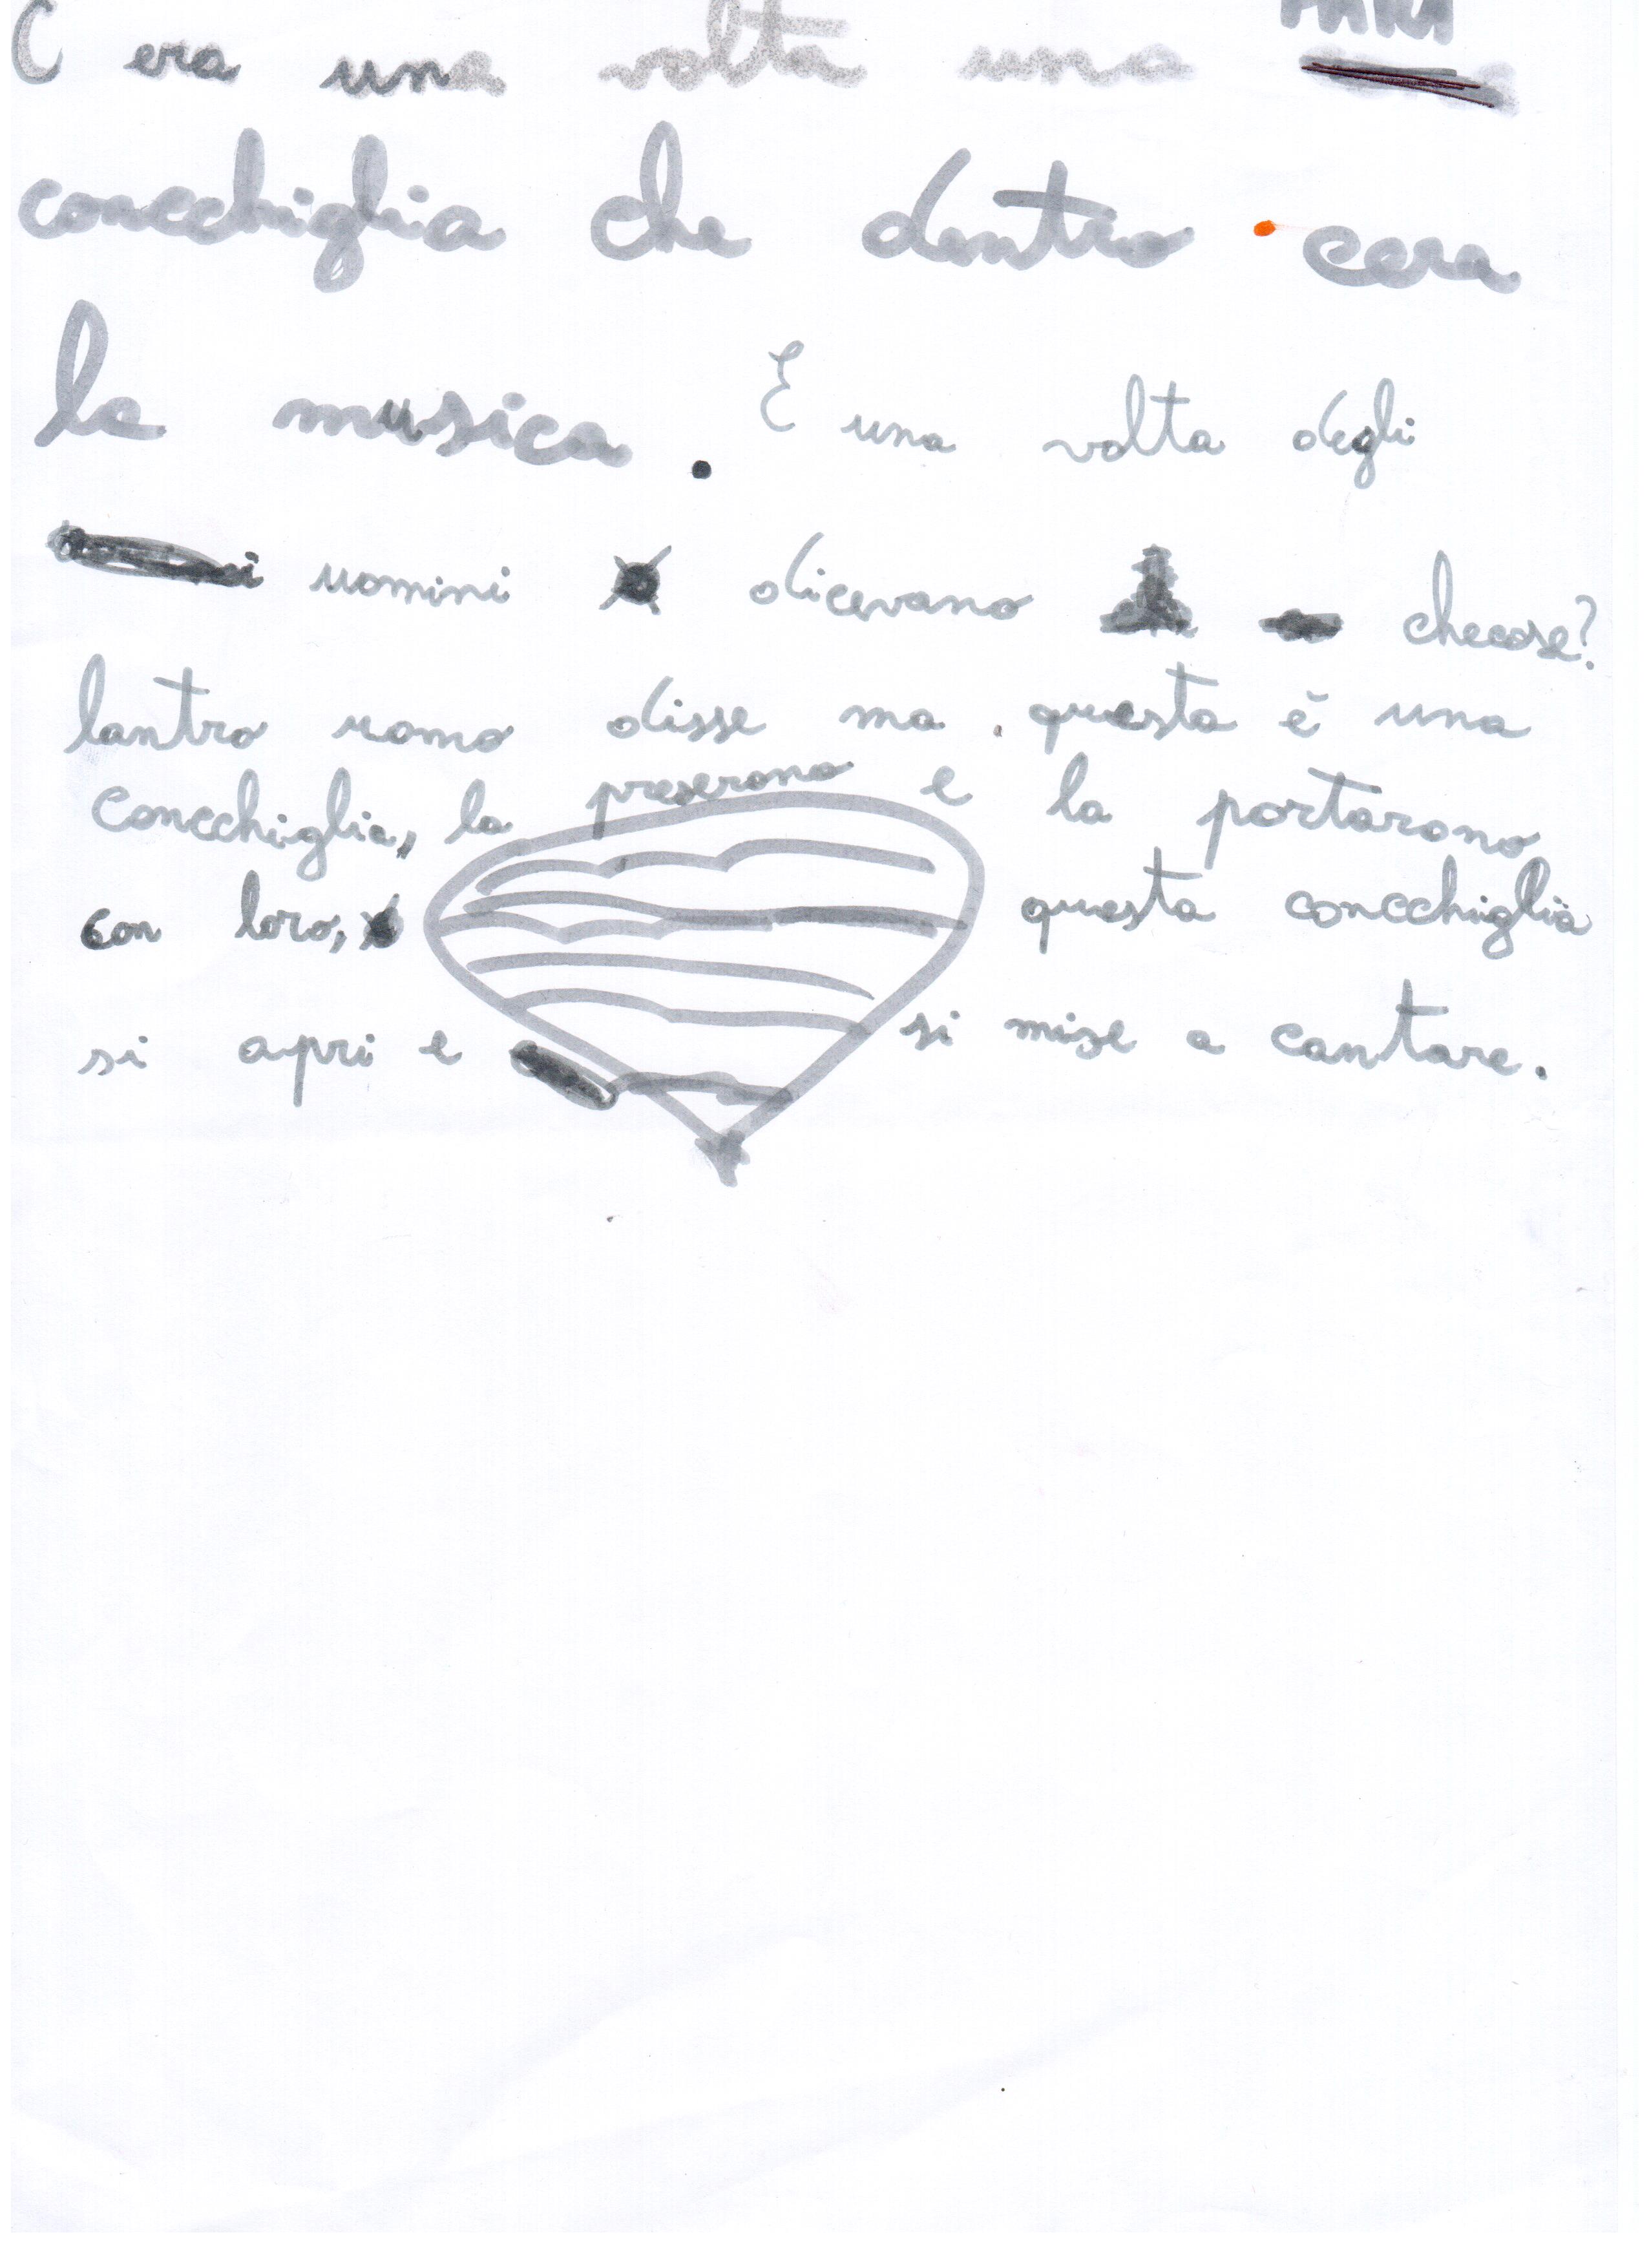 C era una volta una
concchiglia che dentro cera
la musica. E una volta degli
uomini dicevano checose?
lantro uomo disse ma questa è una
concchiglia, la preserono e la portarono
con loro, questa concchiglia
si apri e si mise a cantare.